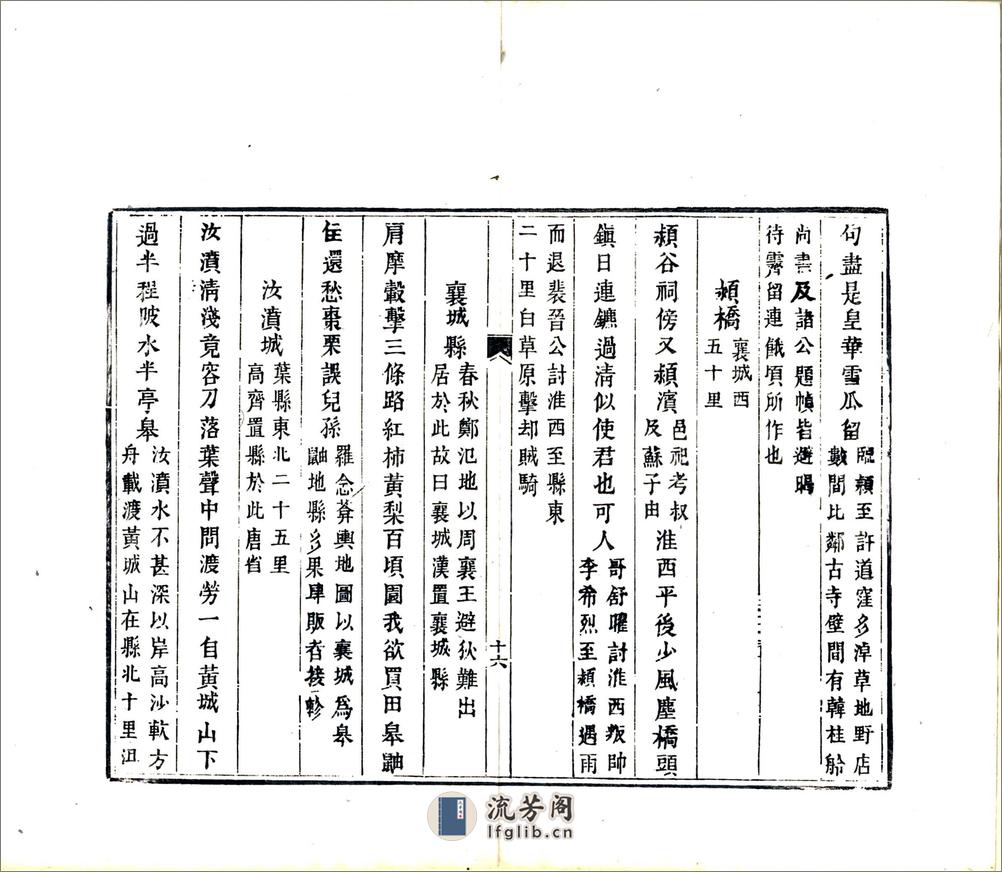 句盡是皇華雪瓜留臨潁至許道窪多淖草地野店
數間比鄰古寺壁間有韓桂舲
尚書及諸公題幀皆避暍
待霽留連餓頃所作也
潁橋襄城西
五十里
潁谷祠傍又潁濱邑祀考叔
及蘇子由淮西平後少風塵橋頭
鎭日連鑣過淸似使君也可人哥舒曜討淮西叛帥
李希烈至潁橋遇雨
而退裴晉公討淮西至縣東
二十里白草原擊却賊騎
十六
襄城縣春秋鄭氾地以周襄王避狄難出
居於此故曰襄城漢置襄城縣
肩摩轂擊三條路紅柿黃梨百頃園我欲買田皋鼬
住還愁棗栗誤兒孫羅念菴輿地圖以襄城爲皋
鼬地縣多果肆販者接軫
汝濆城葉縣東北二十五里
高齊置縣於此唐省
汝濆淸淺竟容刀落葉聲中問渡勞一自黃城山下
過半程陂水半亭皋汝濆水不甚深以岸高沙軟方
舟載渡黃城山在縣北十里沮
流芳阁
lfglib.cn